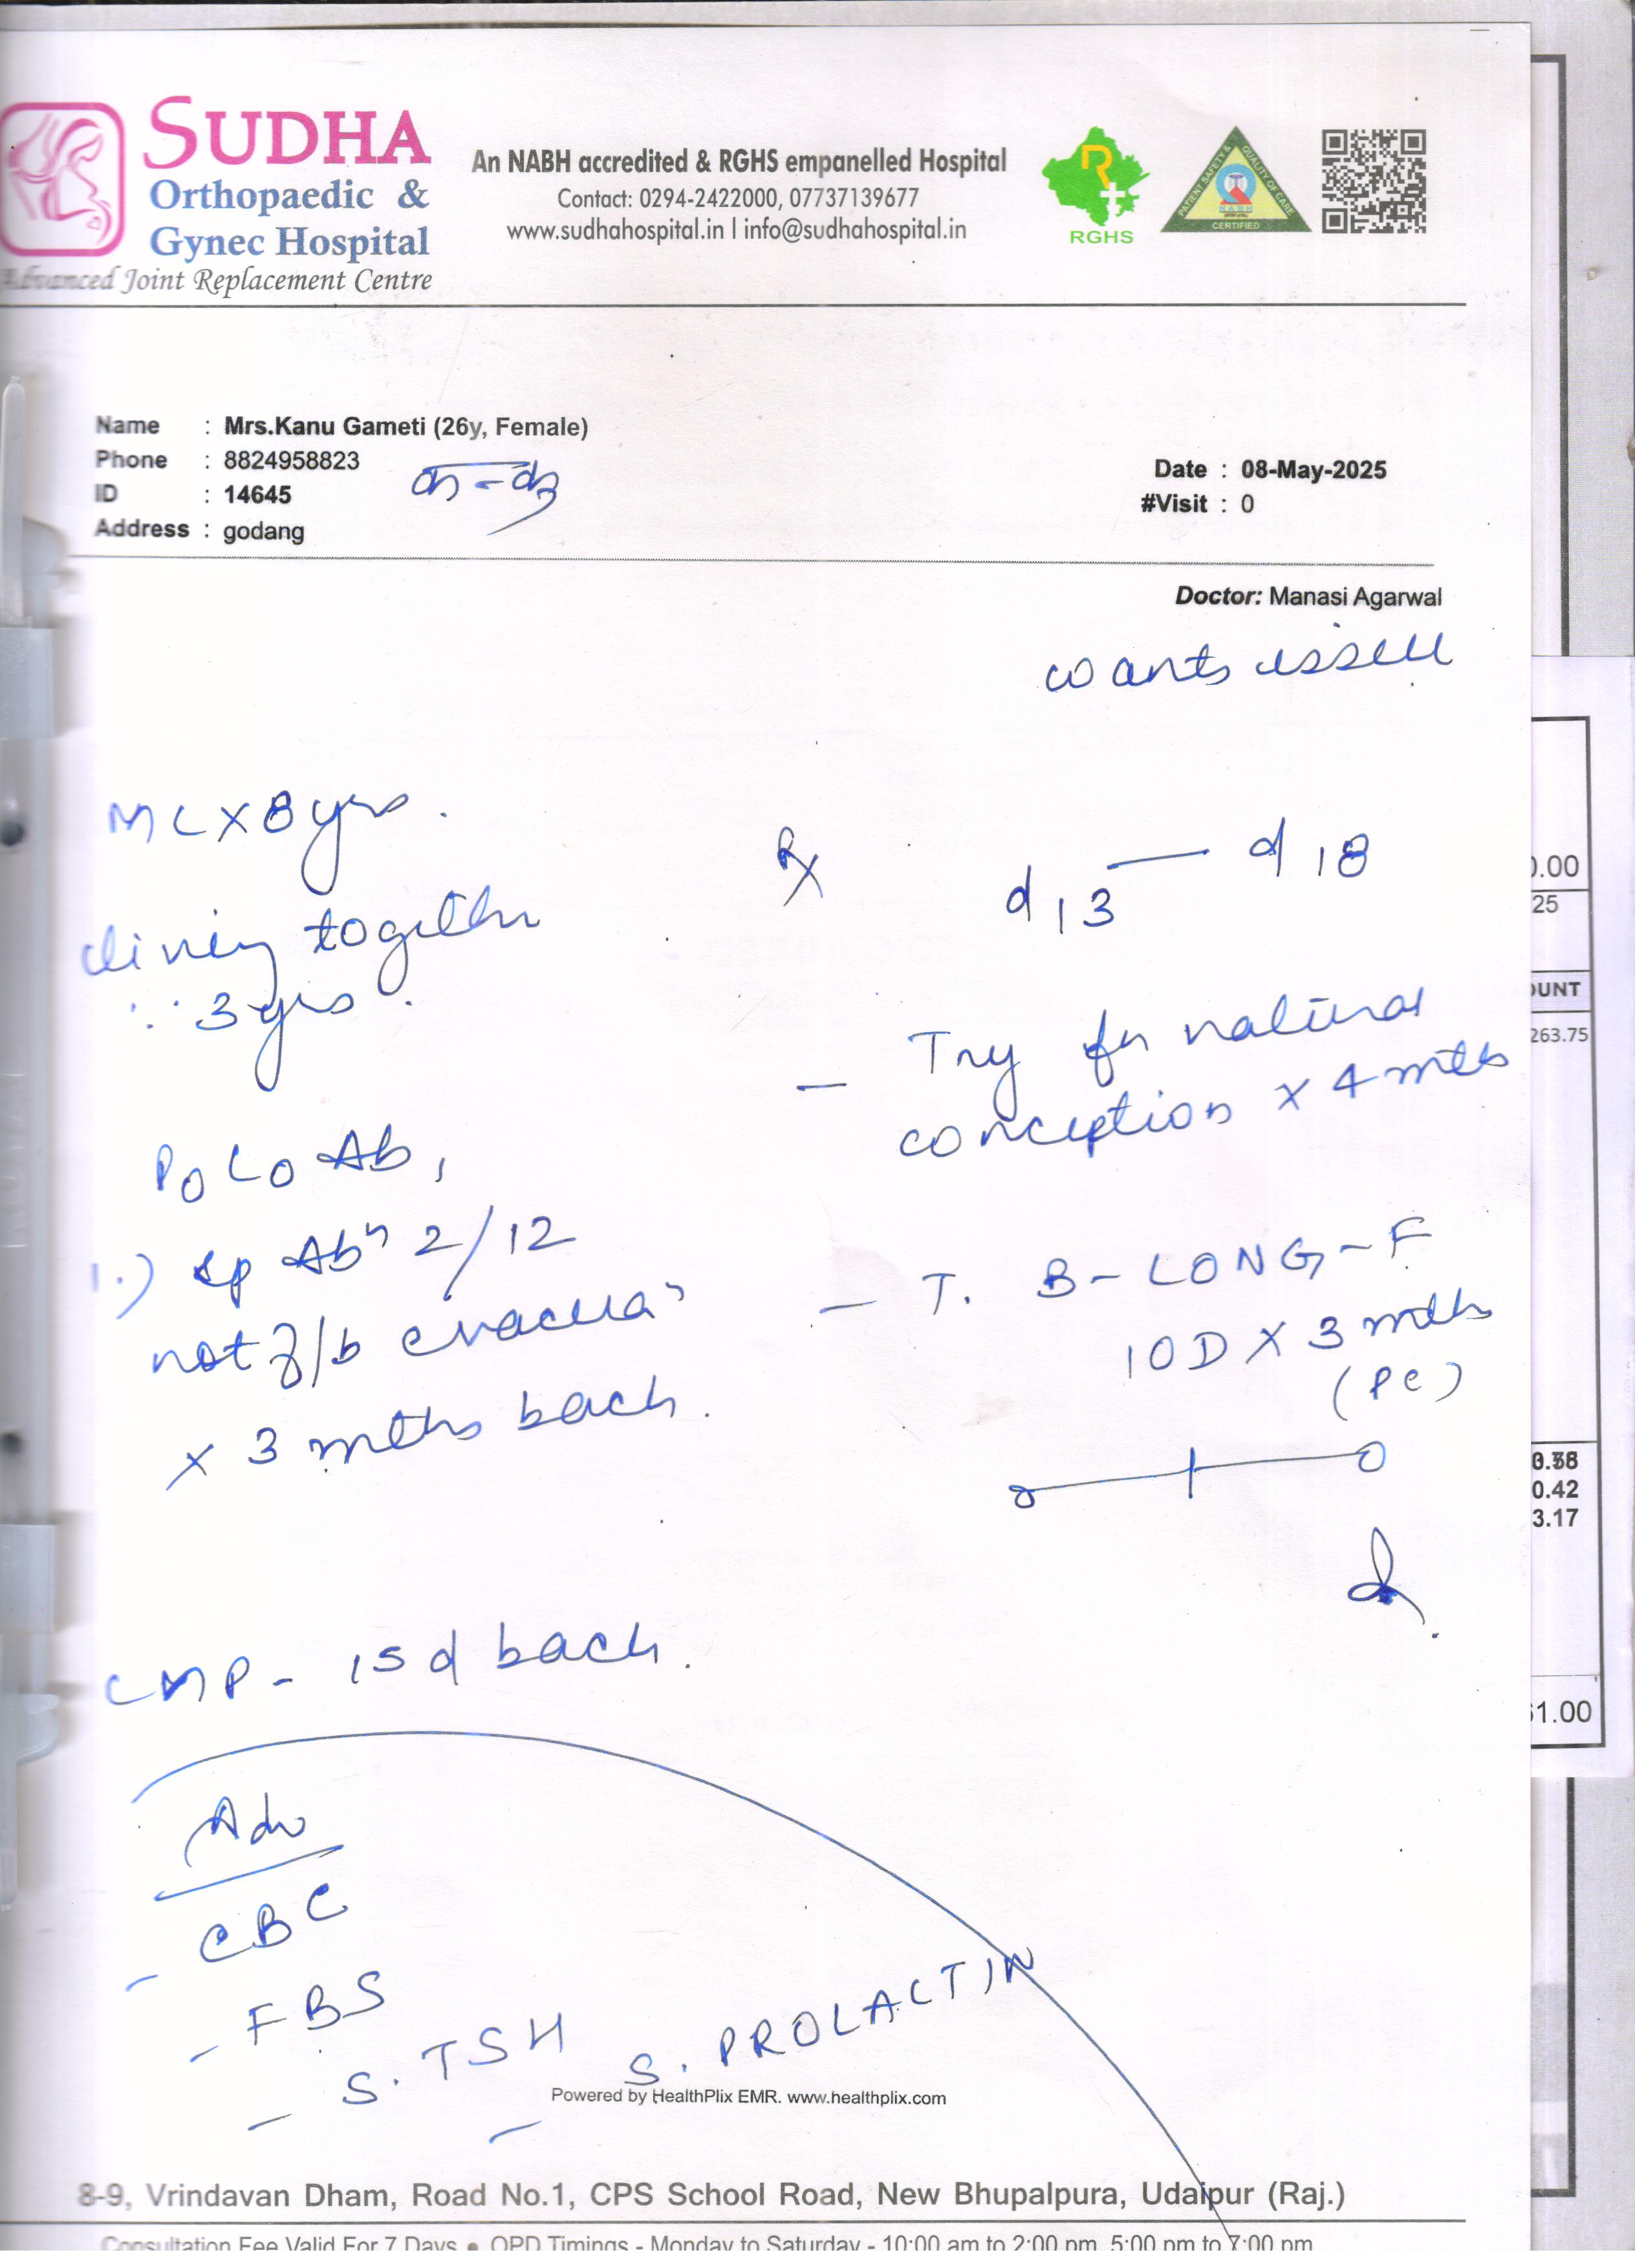 SUDHA
Orthopaedic &
Gynec Hospital
Advanced Joint Replacement Centre
An NABH accredited & RGHS empanelled Hospital
Contact: 0294-2422000, 07737139677
www.sudhahospital.in | info@sudhahospital.in
RGHS
PATIENT SAFETY & QUALITY OF CARE
NABH
CERTIFIED
Name : Mrs.Kanu Gameti (26y, Female)
Phone : 8824958823
ID : 14645
Address : godang
Date : 08-May-2025
#Visit : 0
Doctor: Manasi Agarwal
wants issue
MLX8yrs.
living together
∵ 3yrs.
P0L0Ab1
1.) sp Abn 2/12
not f/b evacua
x 3 mths back.
LMP- 15d back.
Adv
- CBC
- FBS
- S. TSH
- S. PROLACTIN
Rx
d13 — d18
- Try for natural
conception x 4 mths
- T. B-LONG-F
10D X 3 mths
(PC)
Powered by HealthPlix EMR. www.healthplix.com
8-9, Vrindavan Dham, Road No.1, CPS School Road, New Bhupalpura, Udaipur (Raj.)
Consultation Fee Valid For 7 Days • OPD Timings - Monday to Saturday - 10:00 am to 2:00 pm, 5:00 pm to 7:00 pm
0.00
25
OUNT
263.75
0.42
3.17
61.00